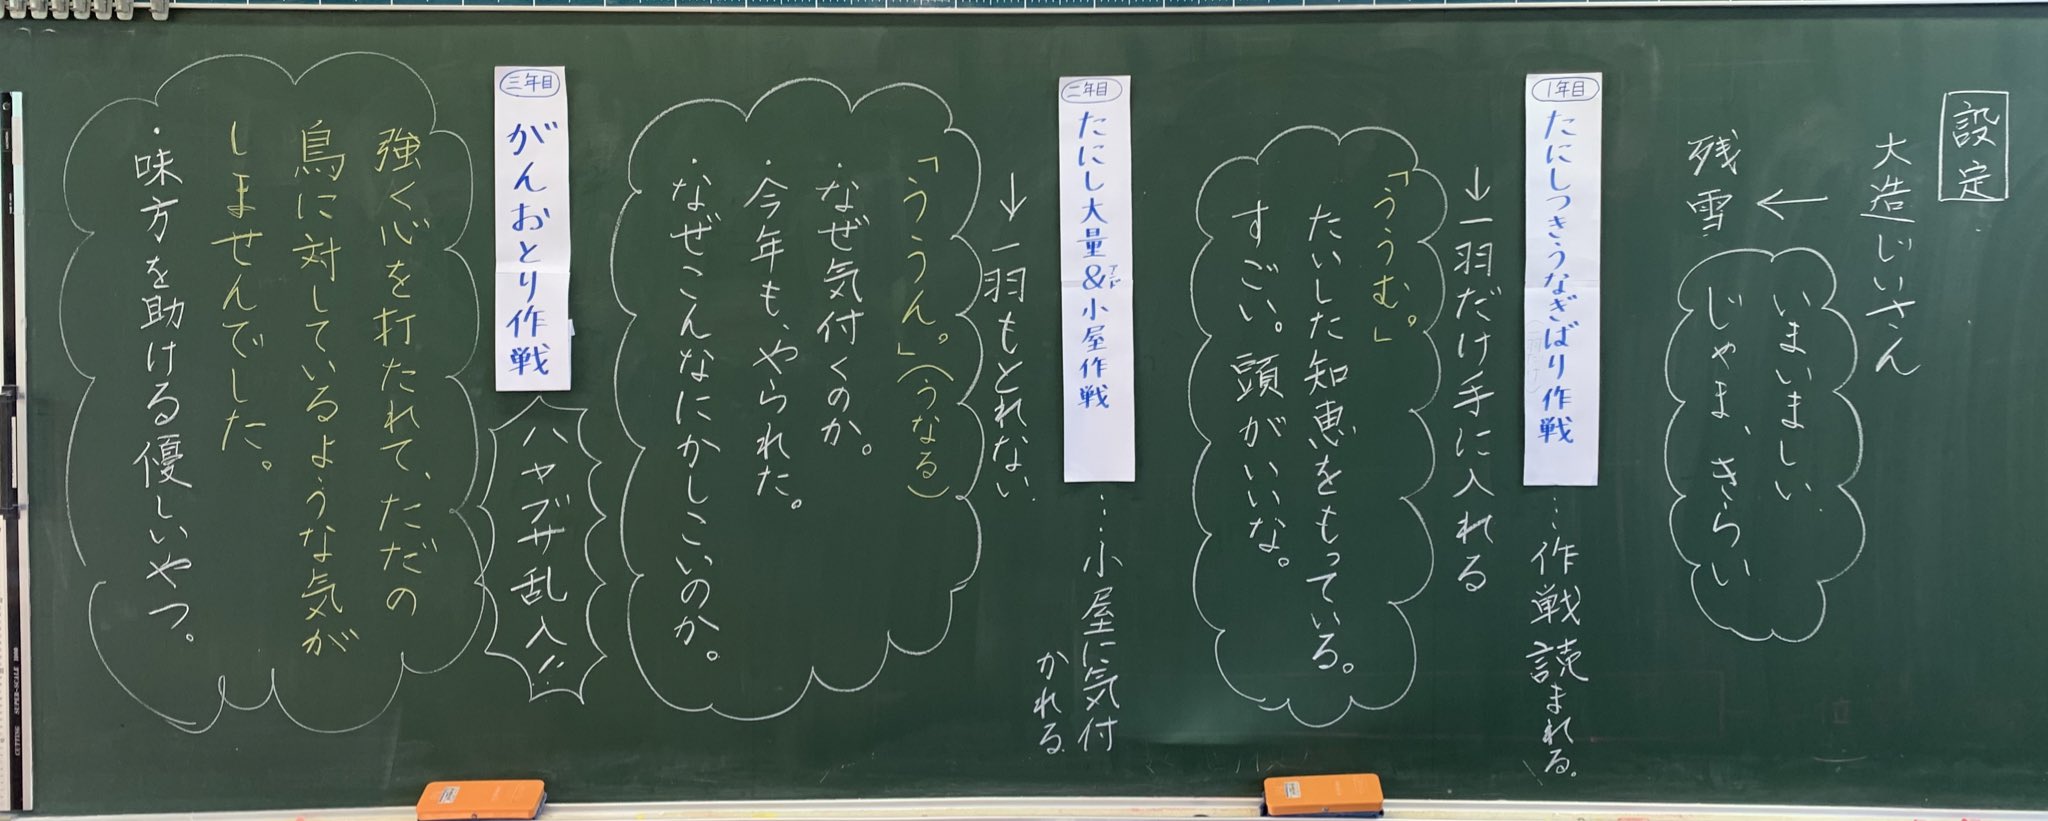 設定
大造じいさん
←
残雪
いまいましい
じゃま、きらい
1年目
たにしつきうなぎばり作戦
…作戦読まれる。
→一羽だけ手に入れる
「ううむ。」
たいした知恵をもっている。
すごい。頭がいいな。
二年目
たにし大量&小屋作戦
アンド
……小屋に気付
かれる
→一羽もとれない
「ううん。」(うなる)
・なぜ気付くのか。
・今年も、やられた。
・なぜこんなにかしこいのか。
三年目
がんおとり作戦
ハヤブサ乱入!!
強く心を打たれて、ただの
鳥に対しているような気が
しませんでした。
・味方を助ける優しいやつ。